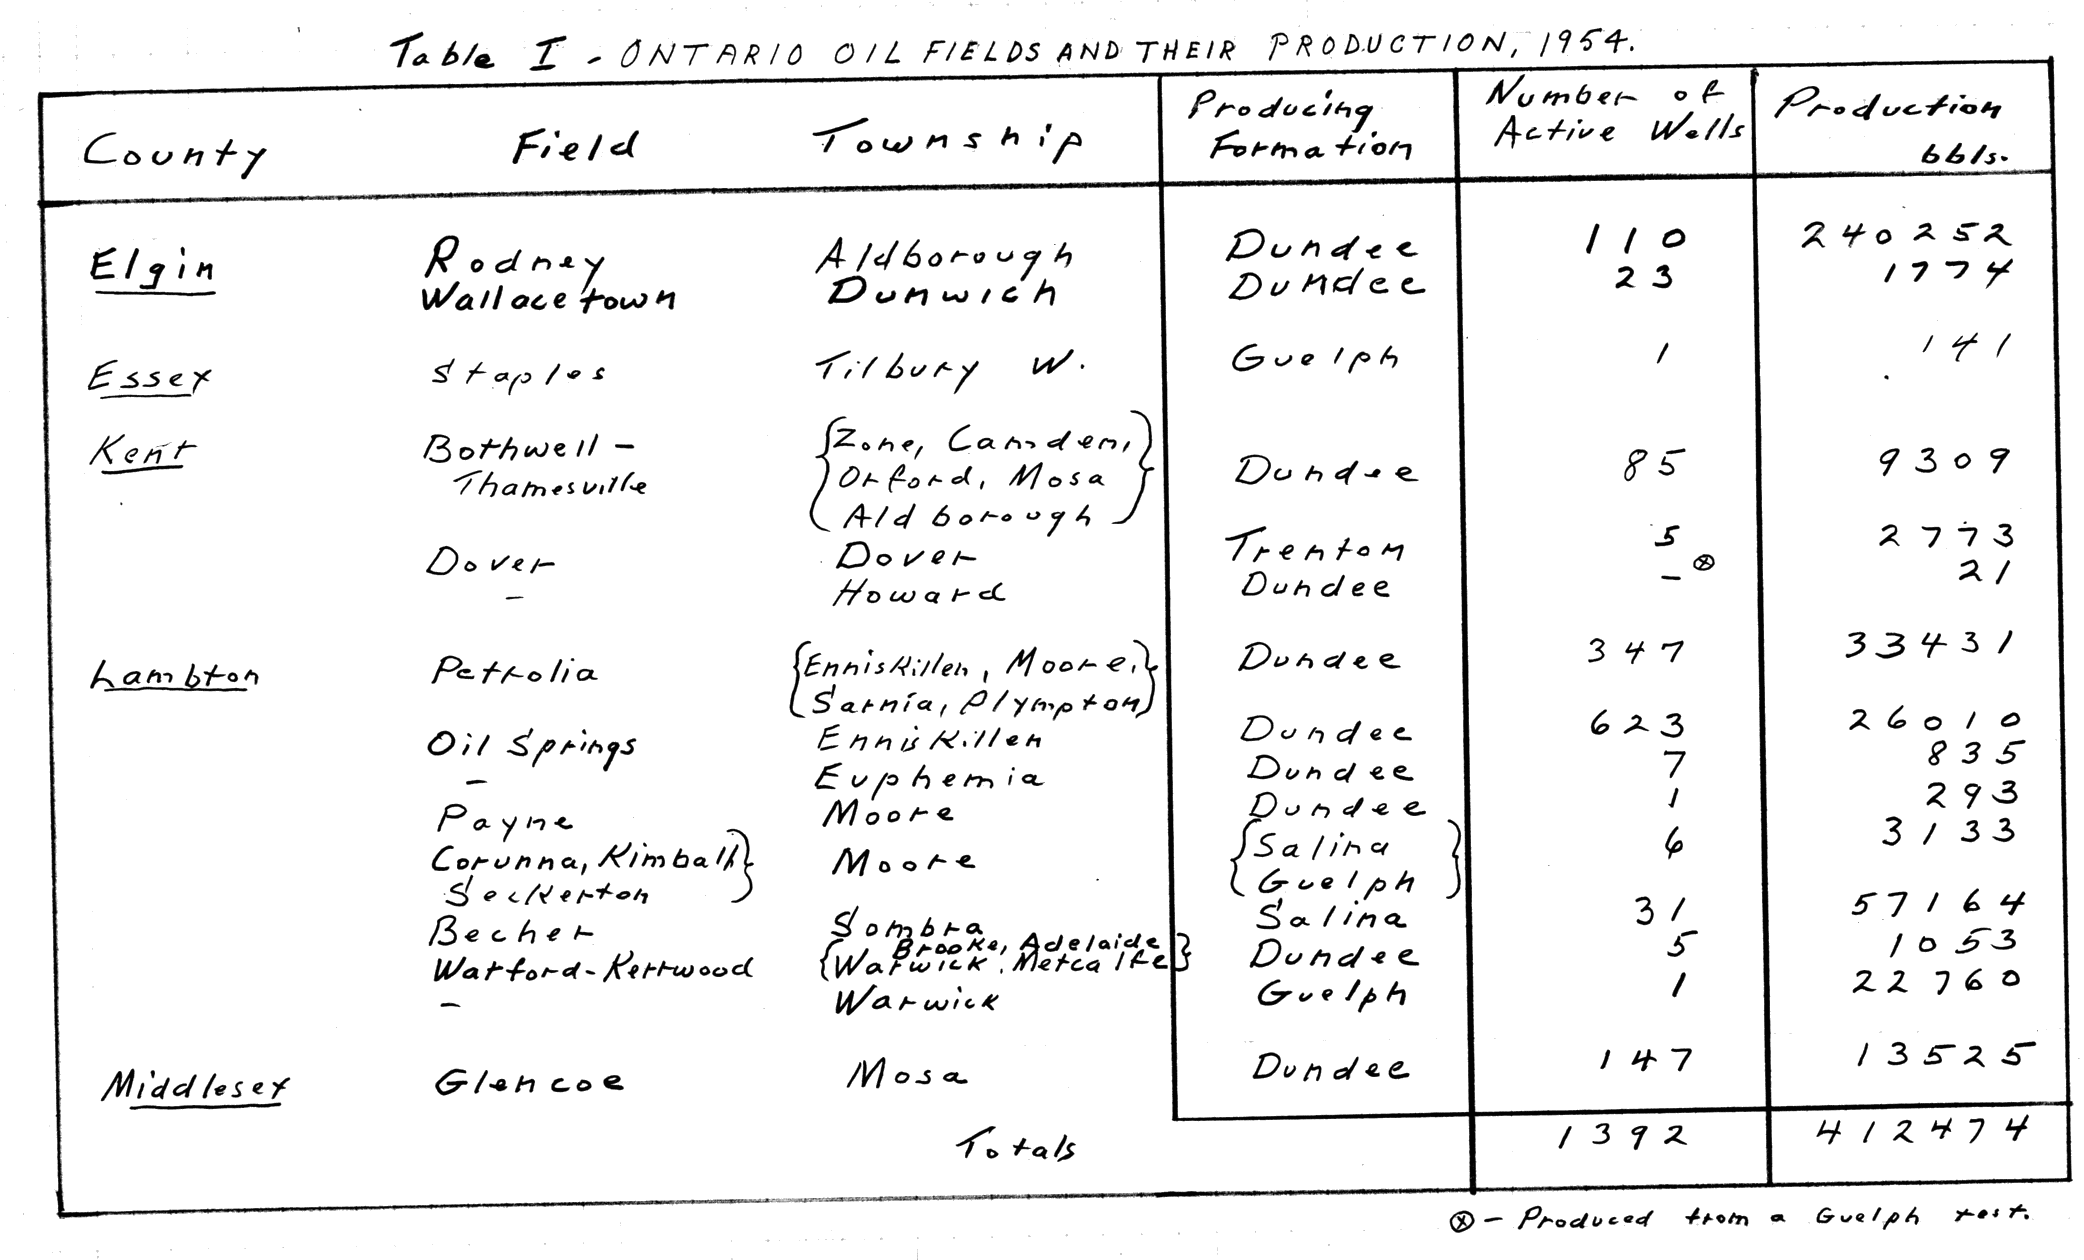 Table I - ONTARIO OIL FIELDS AND THEIR PRODUCTION, 1954.
County Field Township Producing Formation Number of Active Wells Production bbls.
Elgin Rodney Aldborough Dundee 110 240252
Wallacetown Dunwich Dundee 23 1774
Essex Staples Tilbury W. Guelph 1 141
Kent Bothwell - Zone, Camden,
Thamesville Orford, Mosa Dundee 85 9309
Aldborough
Dover Dover Trenton 5 2773
- Howard Dundee - ⊗ 21
Lambton Petrolia Enniskillen, Moore, Dundee 347 33431
Sarnia, Plympton
Oil Springs Enniskillen Dundee 623 26010
- Euphemia Dundee 7 835
Payne Moore Dundee 1 293
Corunna, Kimball Moore Salina 6 3133
Seckerton Guelph
Becher Sombra Salina 31 57164
Brooke, Adelaide
Watford-Kerrwood Warwick, Metcalfe Dundee 5 1053
- Warwick Guelph 1 22760
Middlesex Glencoe Mosa Dundee 147 13525
Totals 1392 412474
⊗ - Produced from a Guelph test.